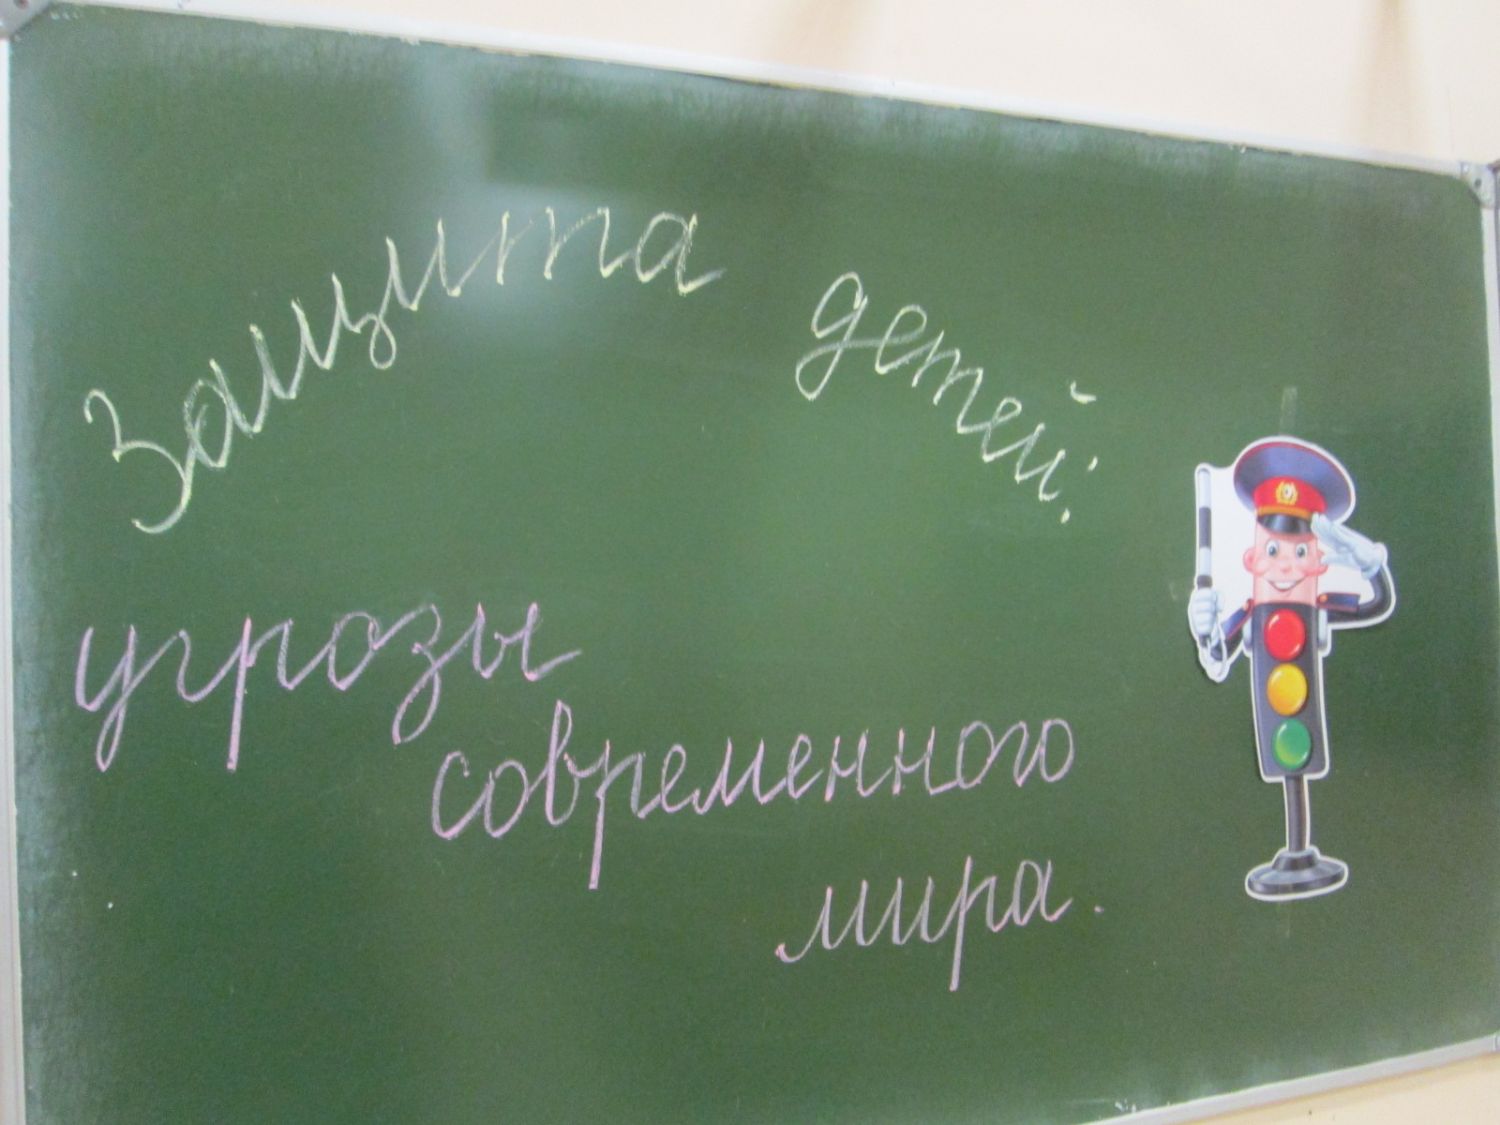 Защита детей:
угрозы
современного
мира.